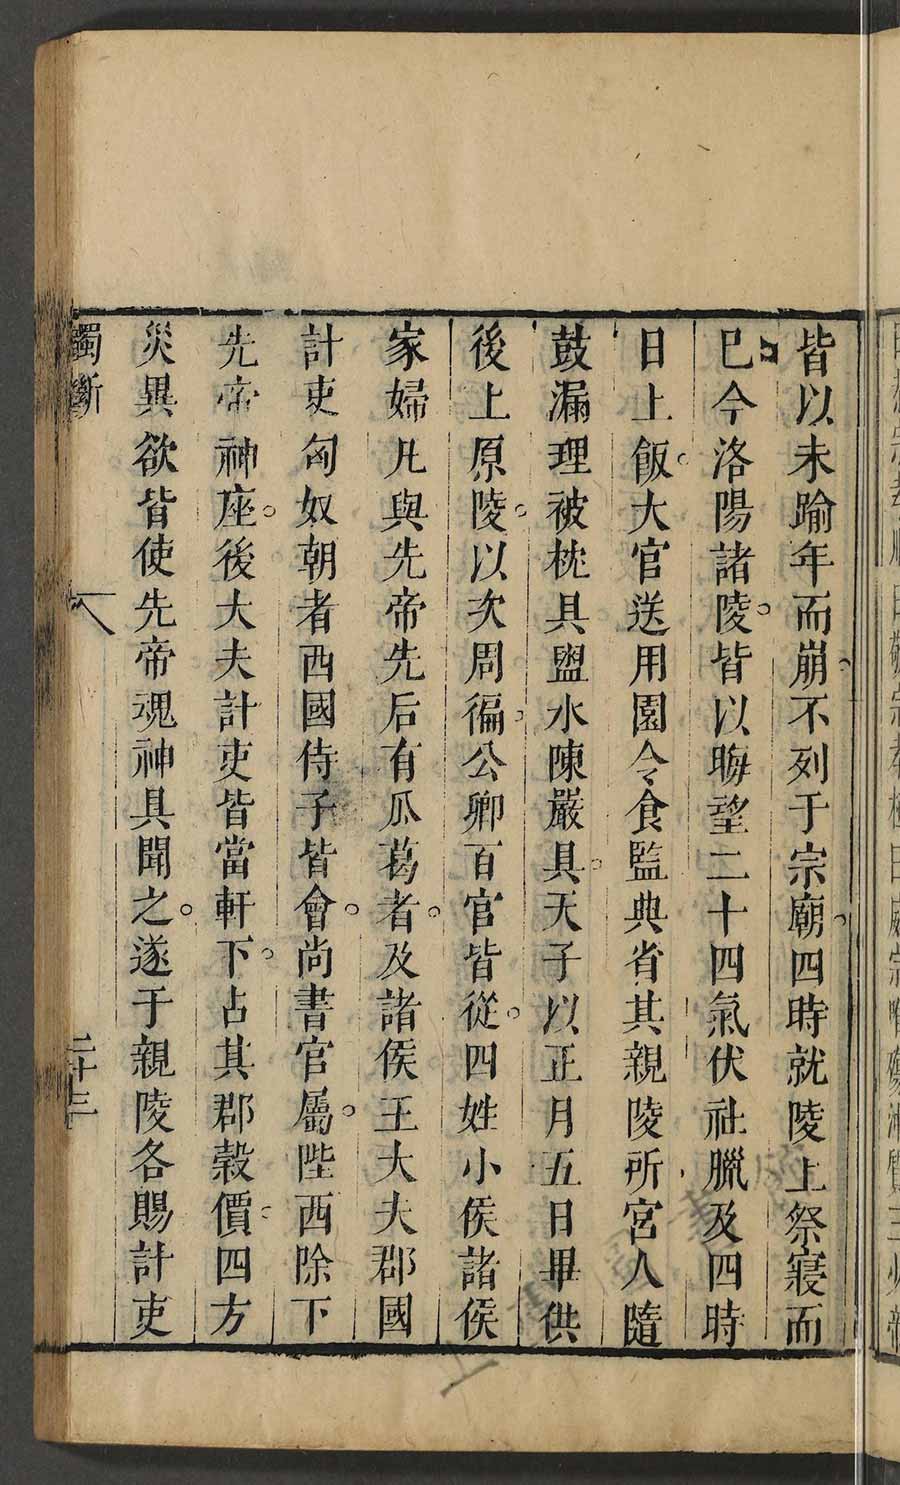 皆以未踰年而崩不列于宗廟四時就陵上祭寢而
已今洛陽諸陵皆以晦望二十四氣伏社臘及四時
日上飯大官送用園令食監典省其親陵所宮人隨
鼓漏理被枕具盥水陳嚴具天子以正月五日畢供
後上原陵以次周徧公卿百官皆從四姓小侯諸侯
家婦凡與先帝先后有瓜葛者及諸侯王大夫郡國
計吏匈奴朝者西國侍子皆會尚書官屬陛西除下
先帝神座後大夫計吏皆當軒下占其郡穀價四方
災異欲皆使先帝魂神具聞之遂于親陵各賜計吏
獨斷 二十三